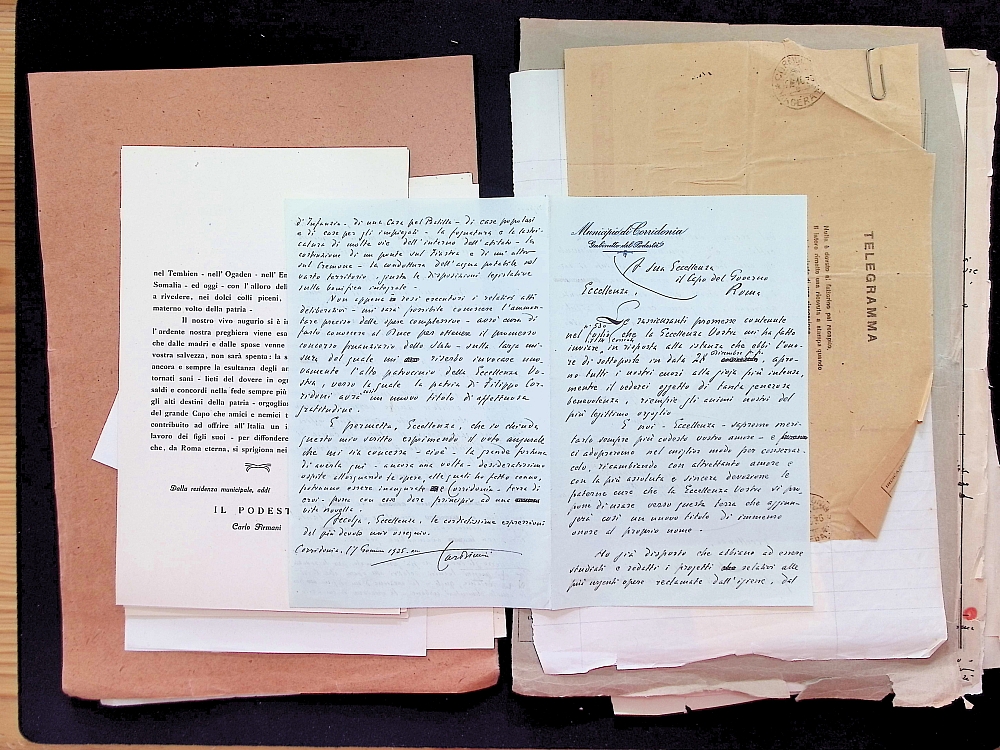 nel Tembien - nell' Ogaden - nell' En
Somalia - ed oggi - con l'alloro dell
a rivedere, nei dolci colli piceni,
materno volto della patria -
Il nostro vivo augurio si è in
l'ardente nostra preghiera viene esa
che dalle madri e dalle spose venne
vostra salvezza, non sarà spenta: la s
ancora e sempre la esultanza degli an
tornati sani - lieti del dovere in og
saldi e concordi nella fede sempre più
gli alti destini della patria - orgoglios
del grande Capo che amici e nemici t
contribuito ad offrire all'Italia un i
lavoro dei figli suoi - per diffondere
che, da Roma eterna, si sprigiona nei
Dalla residenza municipale, addì
IL PODEST
Carlo Firmani
d'Infanzia - di una Casa pel Balilla - di case popolari
e di case per gli impiegati - la fognatura e la lastri-
catura di molte vie dell'interno dell'abitato - la
costruzione di un ponte sul Fiastra e di un altro
sul Cremone - la conduttura dell'acqua potabile nel
vasto territorio - giusta le disposizioni legislative
sulla bonifica integrale -
Non appena esecutori i relativi atti
deliberativi - mi sarà possibile conoscere l'ammon-
tare preciso delle opere complessive - avrò cura di
farlo conoscere al Duce per ottenere il promesso
concorso finanziario dello Stato - sulla larga mi-
sura del quale mi riserbo invocare nuo-
vamente l'alto patrocinio della Eccellenza Vo-
stra, verso la quale la patria di Filippo Cor-
ridoni avrà un nuovo titolo di affettuosa
gratitudine.
E permetta, Eccellenza, che io chiuda
questo mio scritto esprimendo il voto augurale
che mi sia concessa - cioè - la grande fortuna
di averla qui - ancora una volta - desideratissimo
ospite allorquando le opere, alle quali ho fatto cenno,
potranno essere inaugurate e Corridonia - terra di
eroi - possa con esse dare principio ad una
vita novella.
Accolga, Eccellenza, le cordialissime espressioni
del più devoto mio ossequio.
Corridonia, 17 Gennaio 1935. XIII
Municipio di Corridonia
Gabinetto del Podestà
A Sua Eccellenza
il Capo del Governo
Roma
Eccellenza,
Le rassicuranti promesse contenute
nel foglio che la Eccellenza Vostra mi ha fatto
inviare, in risposta alla istanza che ebbi l'ono-
re di sottoporle in data 26 Dicembre apro-
no tutti i nostri cuori alla gioja più intensa,
mentre il vederci oggetto di tanta generosa
benevolenza, riempie gli animi nostri del
più legittimo orgoglio.
E noi - Eccellenza - sapremo meri-
tarlo sempre più codesto vostro amore - e
ci adopreremo nel miglior modo per conservar-
celo, ricambiando con altrettanto amore e
con la più assoluta e sincera devozione le
paterne cure che la Eccellenza Vostra si pro-
pone di usare verso questa terra che aggiun-
gerà così un nuovo titolo di immenso
onore al proprio nome.
Ho già disposto che abbiano ad essere
studiati e redatti i progetti relativi alle
più urgenti opere reclamate dall'igiene, dal
TELEGRAMMA
Nulla è dovuto al fattorino pel recapito.